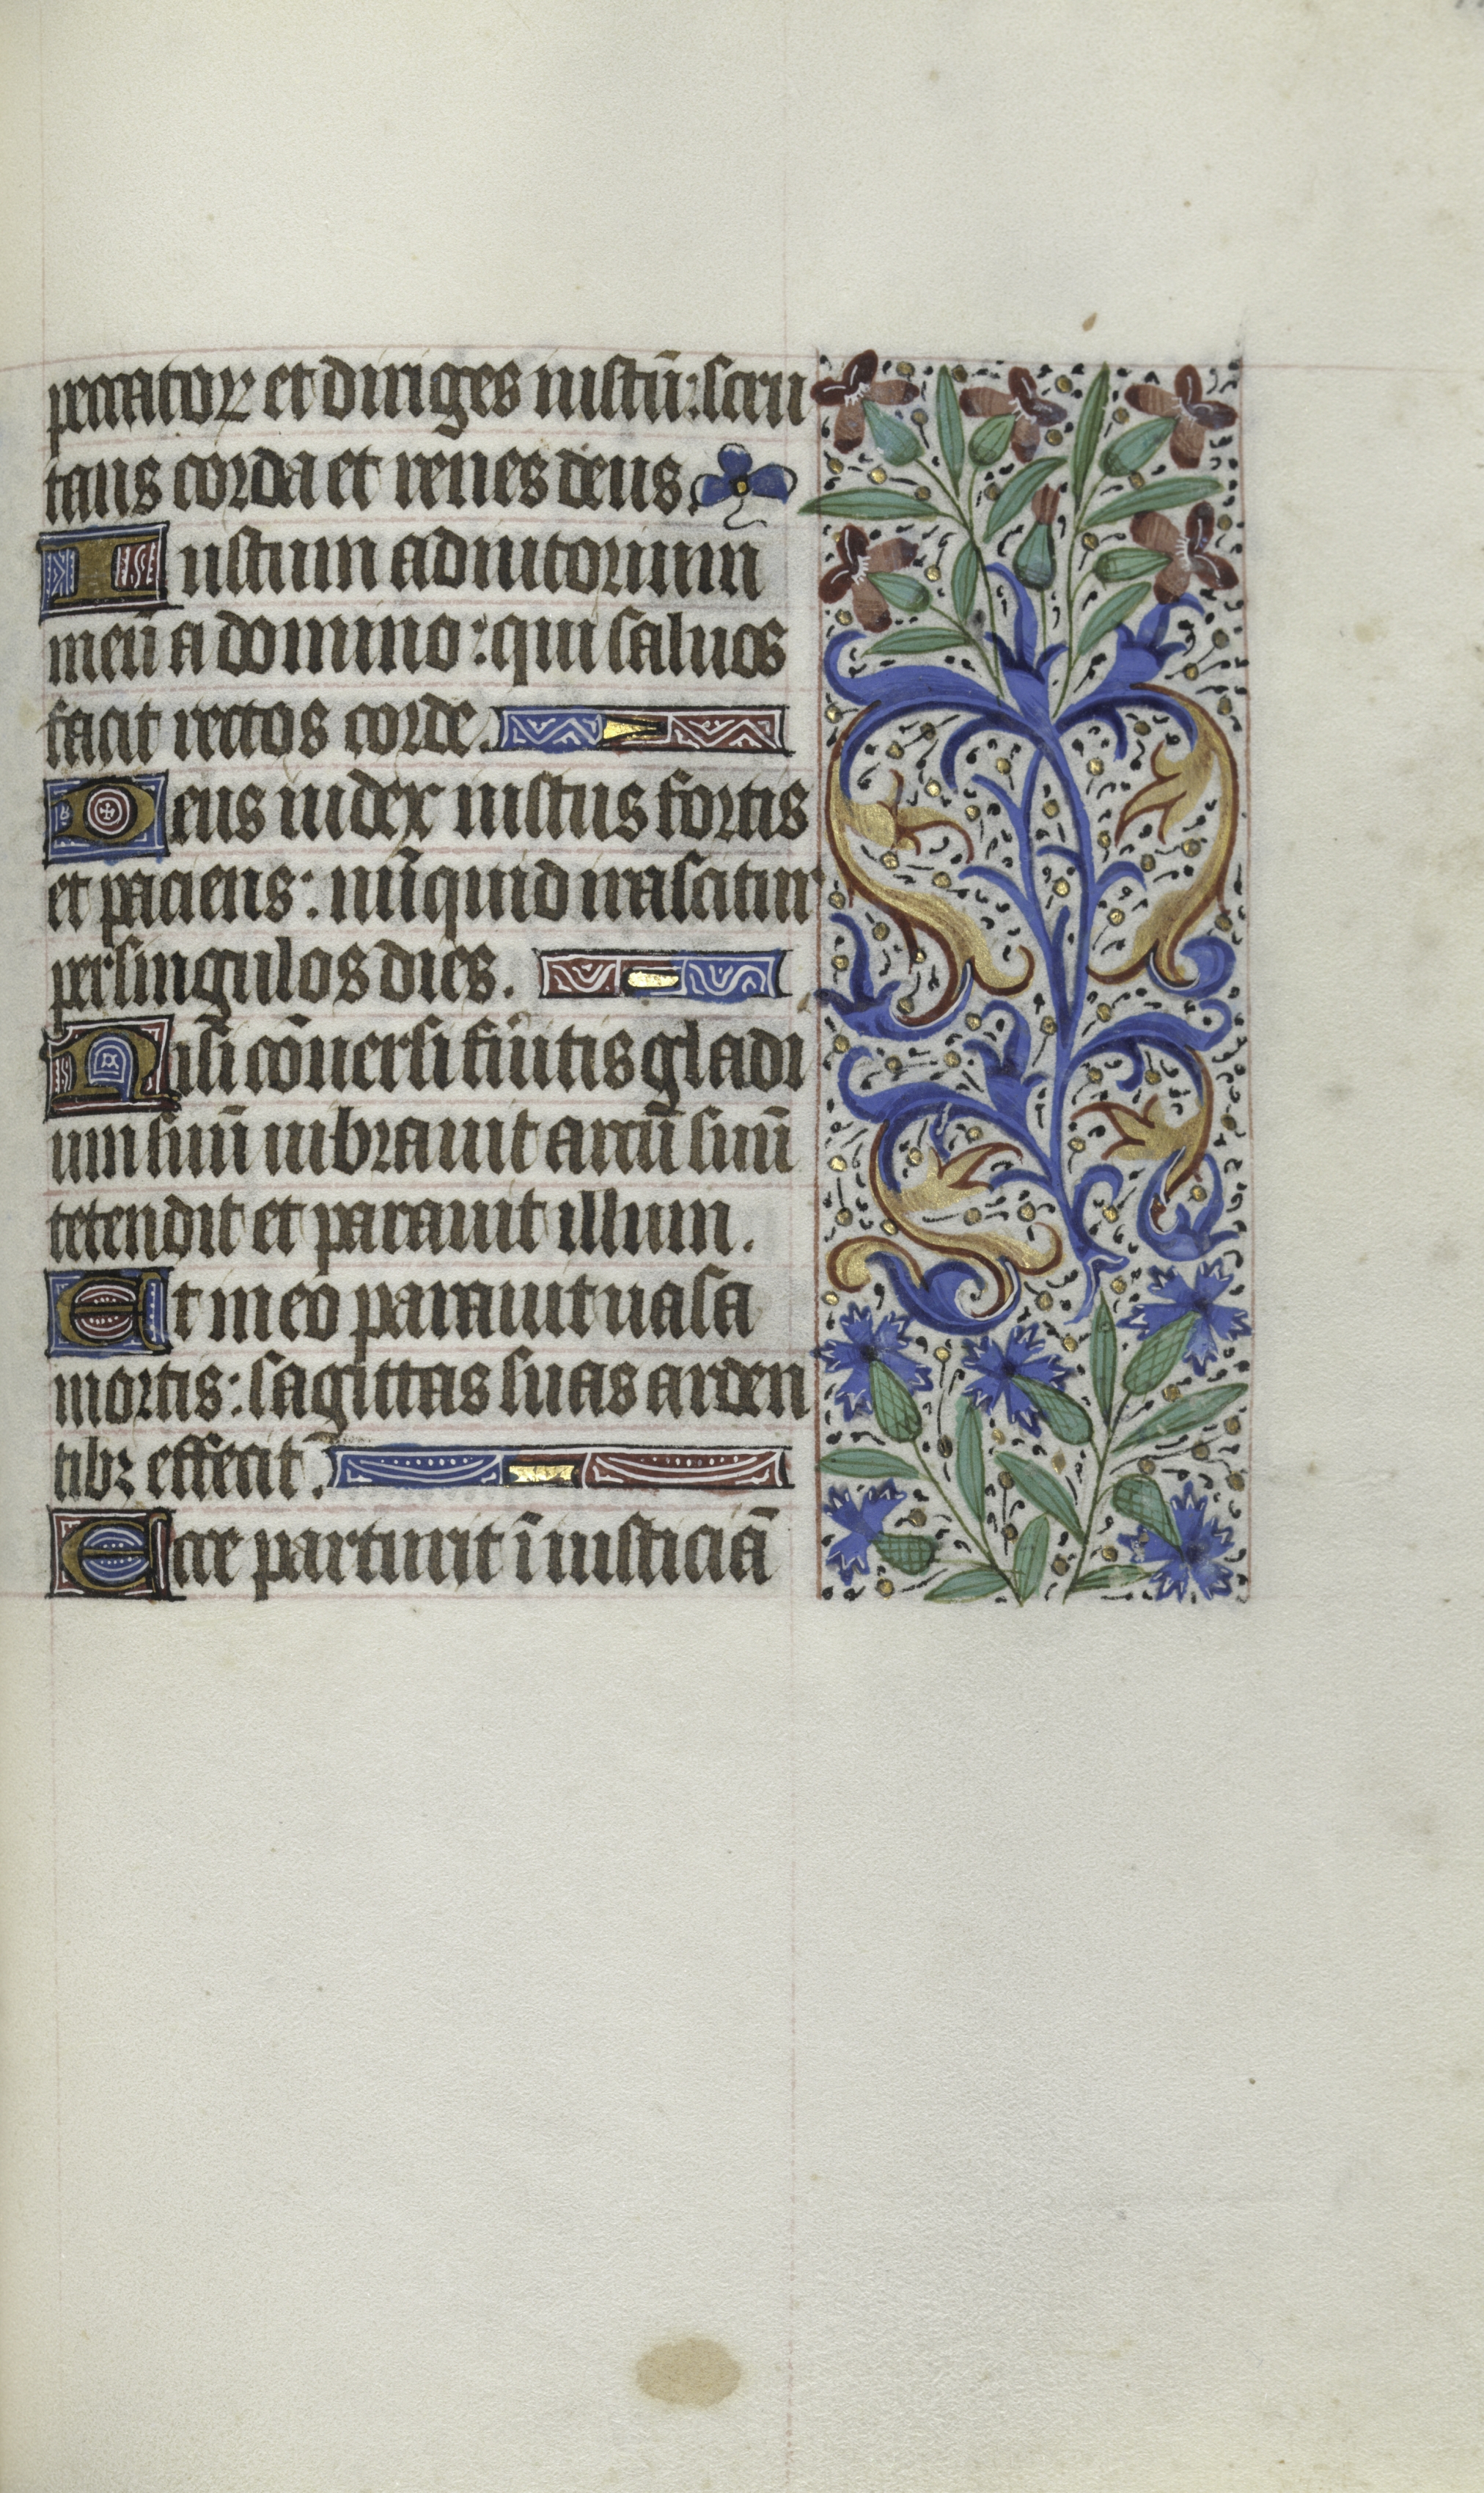 peccatoꝝ et diriges iustū: scru
tans corda et renes deus.
Iustum adiutorium
meū a domino: qui saluos
facit rectos corde.
Deus iudex iustus fortis
et paciens: nūquid irascitur
per singulos dies.
Nisi cōuersi fūitis gladi
um suū uibrauit arcū suū
tetendit et parauit illum.
Et in eo parauit uasa
mortis: sagittas suas arden
tibꝫ effecit.
Ecce parturit ī iusticiā